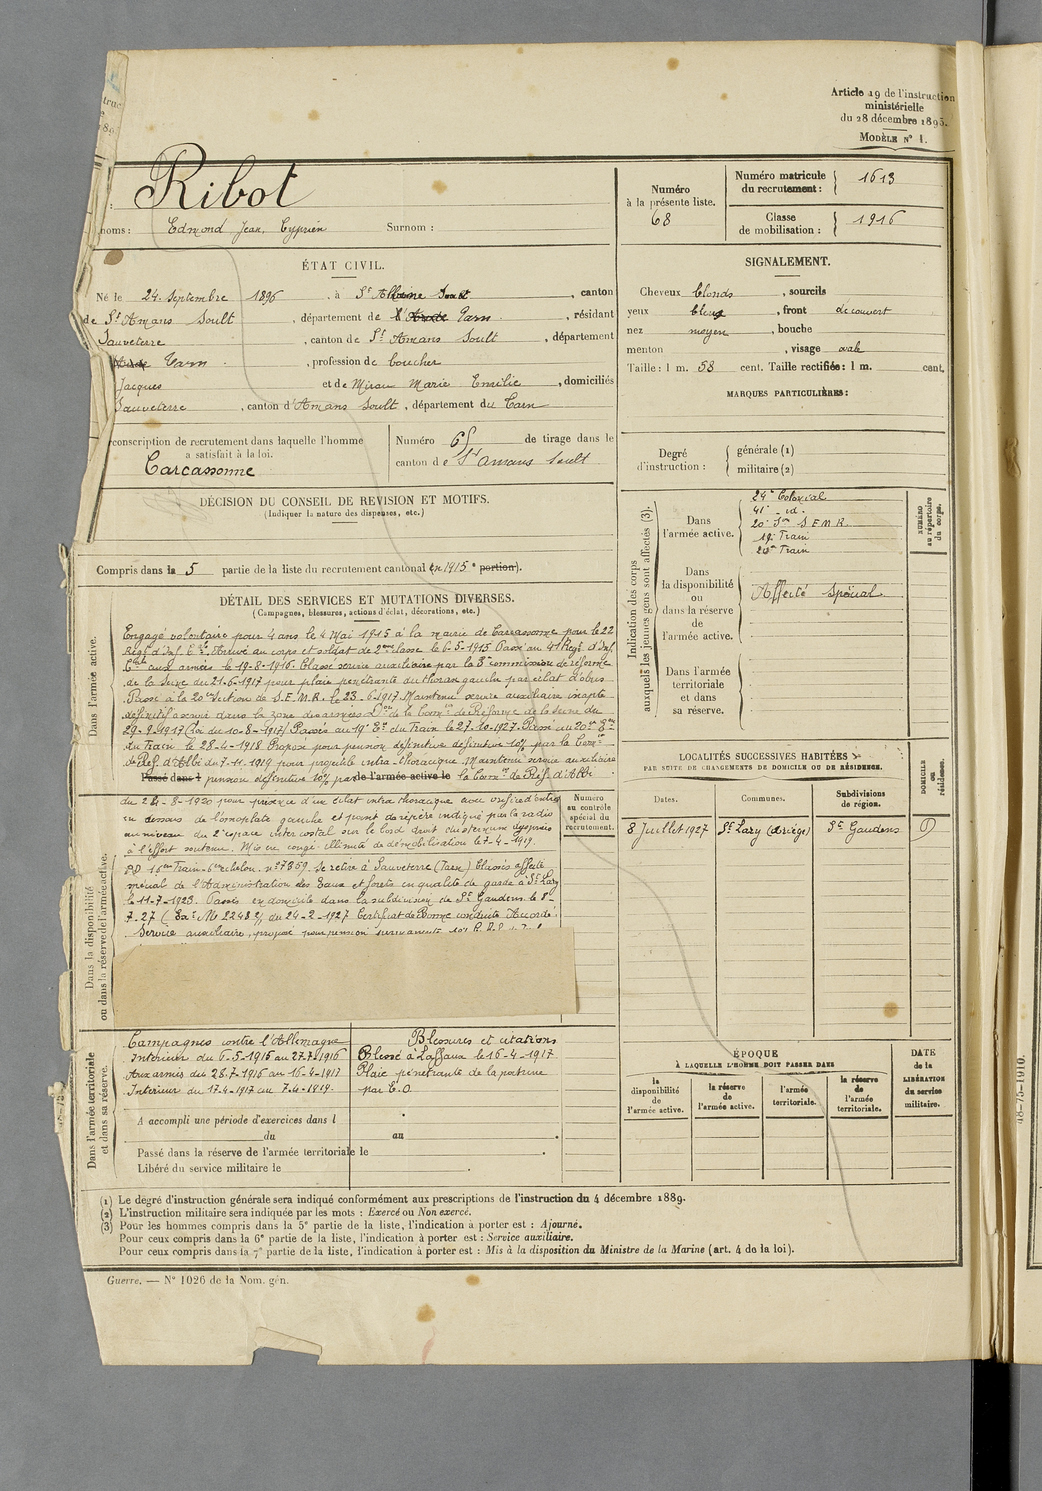 Article 19 de l'instruction
ministérielle
du 28 décembre 1895.
MODÈLE N° 1.
Ribot
noms : Edmond Jean, Cyprien Surnom :
Numéro
à la présente liste.
68
Numéro matricule
du recrutement : 1613
Classe
de mobilisation : 1916
ÉTAT CIVIL.
Né le 24 Septembre 1896, à St , canton
de St Amans Soult, département de Tarn, résidant
Sauveterre, canton de St Amans Soult, département
Tarn, profession de boucher
Jacques et de Mirau Marie Emilie, domiciliés
Sauveterre, canton d'Amans Soult, département du Tarn
SIGNALEMENT.
Cheveux blonds, sourcils
yeux bleus, front découvert
nez moyen, bouche
menton , visage ovale
Taille : 1 m. 58 cent. Taille rectifiée : 1 m. cent.
MARQUES PARTICULIÈRES :
conscription de recrutement dans laquelle l'homme
a satisfait à la loi.
Carcassonne
Numéro 68 de tirage dans le
canton de St Amans Soult
Degré
d'instruction :
générale (1)
militaire (2)
DÉCISION DU CONSEIL DE REVISION ET MOTIFS.
(Indiquer la nature des dispenses, etc.)
Compris dans la 5 partie de la liste du recrutement cantonal en 1915 portion).
Indication des corps
auxquels les jeunes gens sont affectés (3).
Dans
l'armée active.
24e Colonial
41e id.
20e Son S.E.M.R.
19e Train
20e Train
Dans
la disponibilité
ou
dans la réserve
de
l'armée active.
Affecté Spécial
Dans l'armée
territoriale
et dans
sa réserve.
NUMÉRO
au répertoire
du corps.
DÉTAIL DES SERVICES ET MUTATIONS DIVERSES.
(Campagnes, blessures, actions d'éclat, décorations, etc.)
Dans l'armée active.
Engagé volontaire pour 4 ans le 4 Mai 1915 à la mairie de Carcassonne pour le 22
Régt d'Inf. Cle. Arrivé au corps et soldat de 2eme classe le 6-5-1915 Passé au 41 Régt d'Inf
Cle aux armées le 19-8-1916. Classé service auxiliaire par la 3e commission de réforme
de la Seine du 21-6-1917 pour plaie pénétrante du thorax gauche par éclat d'obus
Passé à la 20e Section de S.E.M.R. le 23-6-1917 Maintenu service auxiliaire inapte
définitif a servir dans la zone des armées Don de la Comon de Réforme de la Seine du
29-9-1917 (loi du 10-8-1917) Passés au 19e Eon du Train le 27-10-1927. Passé au 20e Eon
du Train le 28-4-1918 Proposé pour pension définitive définitive 10% par la Comon
de Réf. d'Albi du 7-11-1919 pour projectile intra-thoracique Maintenu service auxiliaire
Passé dans l pension définitive 10% par de l'armée active le la Comon de Réf. d'Albi
du 24-8-1920 pour présence d'un éclat intra thoracique avec orifice d'entrée
en dessous de l'omoplate gauche et point de repère indiqué par la radio
au niveau du 2e espace inter costal sur le bord droit du sternum dyspnée
à l'effort soutenu. Mis en congé illimité de démobilisation le 7-4-1919.
Dans la disponibilité
ou dans la réserve de l'armée active.
PD 16eme Train-6eme échelon. n° 7359. Se retire à Sauveterre (Tarn) Classés affecté
spécial de l'Administration des Eaux et forêts en qualité de garde à St Lary
le 11-7-1923. Passés en domicile dans la subdivision de St Gaudens le 8-
7-27 (Ext M 22482/ du 24-2-1927 Certificat de Bonne conduite Accordé.
Service auxiliaire, proposé pour pension permanente 10%
Numéro
au contrôle
spécial du
recrutement.
LOCALITÉS SUCCESSIVES HABITÉES
PAR SUITE DE CHANGEMENTS DE DOMICILE OU DE RÉSIDENCE.
Dates. Communes. Subdivisions
de région.
DOMICILE
ou
résidence.
8 Juillet 1927 St Lary (Ariège) St Gaudens D
Dans l'armée territoriale
et dans sa réserve.
Campagnes contre l'Allemagne
Intérieur du 6-5-1915 au 27-7-1916
Aux armées du 28-7-1916 au 16-4-1917
Intérieur du 17-4-1917 au 7-4-1919.
Blessures et citations
Blessé à Laffaux le 16-4-1917
Plaie pénétrante de la poitrine
par E.O
A accompli une période d'exercices dans l
du au
Passé dans la réserve de l'armée territoriale le
Libéré du service militaire le
ÉPOQUE
À LAQUELLE L'HOMME DOIT PASSER DANS
la
disponibilité
de
l'armée active.
la réserve
de
l'armée active.
l'armée
territoriale.
la réserve
de
l'armée
territoriale.
DATE
de la
LIBÉRATION
du service
militaire.
(1) Le degré d'instruction générale sera indiqué conformément aux prescriptions de l'instruction du 4 décembre 1889.
(2) L'instruction militaire sera indiquée par les mots : Exercé ou Non exercé.
(3) Pour les hommes compris dans la 5e partie de la liste, l'indication à porter est : Ajourné.
Pour ceux compris dans la 6e partie de la liste, l'indication à porter est : Service auxiliaire.
Pour ceux compris dans la 7e partie de la liste, l'indication à porter est : Mis à la disposition du Ministre de la Marine (art. 4 de la loi).
Guerre. — N° 1026 de la Nom. gén.
48-75-1910.